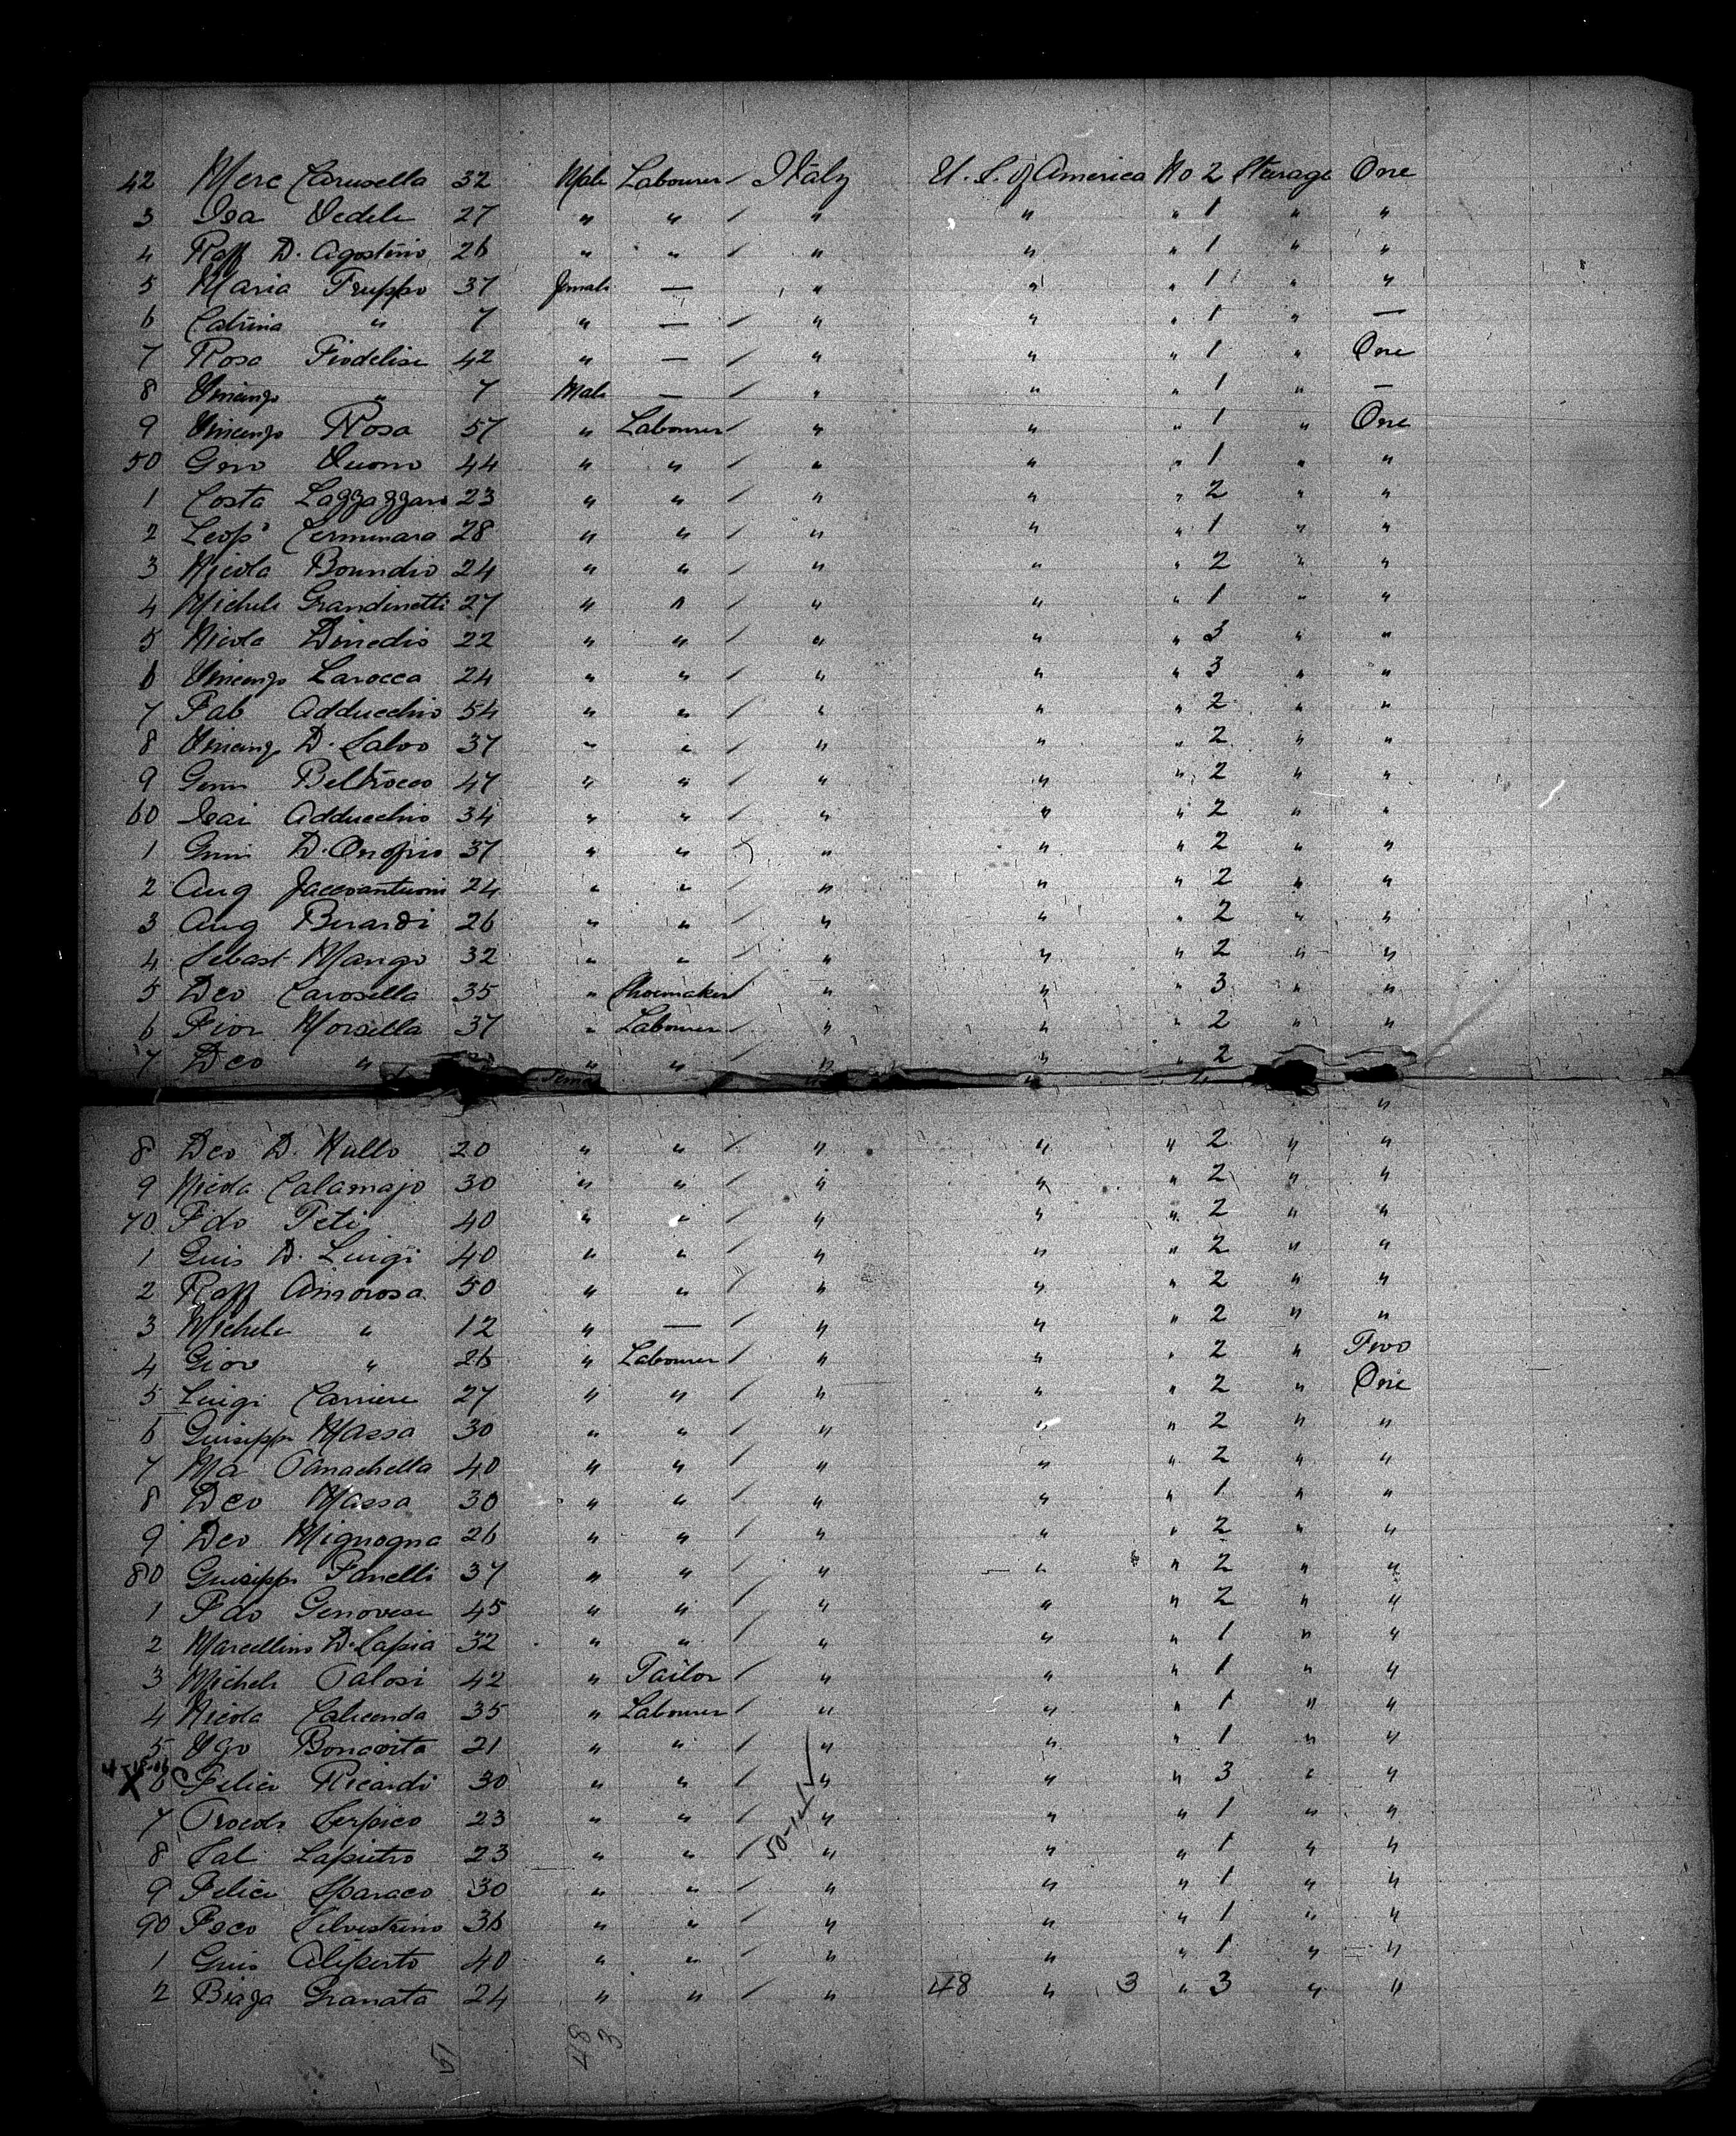 42 Merc Carusella 32 Male Labourer / Italy U. S. of America No 2 Sterage One
3 Isa Vedele 27 " " / " " " 1 " "
4 Raff D. Agostino 26 " " / " " " 1 " "
5 Maria Fruppo 37 Female — " " " 1 " "
6 Catrina " 7 " — / " " " 1 " —
7 Rosa Fiodelise 42 " — / " " " 1 " One
8 Vincenzo " 7 Male — / " " " 1 " —
9 Vincenzo Rosa 57 " Labourer / " " " 1 " One
50 Gero Vuono 44 " " / " " " 1 " "
1 Costa Lazzazzaro 23 " " / " " " 2 " "
2 Leopo Cerminara 28 " " / " " " 1 " "
3 Nicola Boundio 24 " " / " " " 2 " "
4 Michele Grandinetti 27 " " / " " " 1 " "
5 Nicola Dinedio 22 " " / " " " 3 " "
6 Vincenzo Larocca 24 " " / " " " 3 " "
7 Fab Adducchio 54 " " / " " " 2 " "
8 Vincenzo D. Salvo 37 " " / " " " 2 " "
9 Genn Beltrocco 47 " " / " " " 2 " "
60 Isai Adducchio 34 " " / " " " 2 " "
1 D. Onofrio 37 " " " " " 2 " "
2 Aug Jaccoantuoni 24 " " / " " " 2 " "
3 Aug Berardi 26 " " / " " " 2 " "
4 Sebast Mango 32 " " / " " " 2 " "
5 Deo Carosella 35 " Shoemaker / " " " 3 " "
6 Fior Morsella 37 " Labourer / " " " 2 " "
7 Deo " " " / " " " 2
"
8 Deo D. Nallo 20 " " / " " " 2 " "
9 Nicola Calamajo 30 " " / " " " 2 " "
70 Fdo Peti 40 " " / " " " 2 " "
1 Guis D. Luigi 40 " " / " " " 2 " "
2 Raff Amorosa 50 " " / " " " 2 " "
3 Michele " 12 " — / " " " 2 " "
4 Giov " 26 " Labourer / " " " 2 " Two
5 Luigi Carriere 27 " " / " " " 2 " One
6 Guiseppe Massa 30 " " / " " " 2 " "
7 Ma Panachella 40 " " / " " " 2 " "
8 Deo Massa 30 " " / " " " 1 " "
9 Deo Mignogna 26 " " / " " " 2 " "
80 Guiseppe Fanelli 37 " " / " " " 2 " "
1 Fdo Genovese 45 " " / " " " 2 " "
2 Marcellino D. Capia 32 " " / " " " 1 " "
3 Michele Palosi 42 " Tailor / " " " 1 " "
4 Nicola Calicenda 35 " Labourer / " " " 1 " "
5 Ugo Bonavita 21 " " / " " " 1 " "
X 6 Felice Ricardi 30 " " / " " " 3 " "
7 Serpico 23 " " / " " " 1 " "
8 Sal Lapietro 23 " " / " " " 1 " "
9 Felice Sparaco 30 " " / " " " 1 " "
90 Fsco Silvestrino 36 " " / " " " 1 " "
1 Guis Aliperto 40 " " / " " " 1 " "
2 Biaga Granata 24 " " / " 48 " 3 " 3 " "
51 48
3